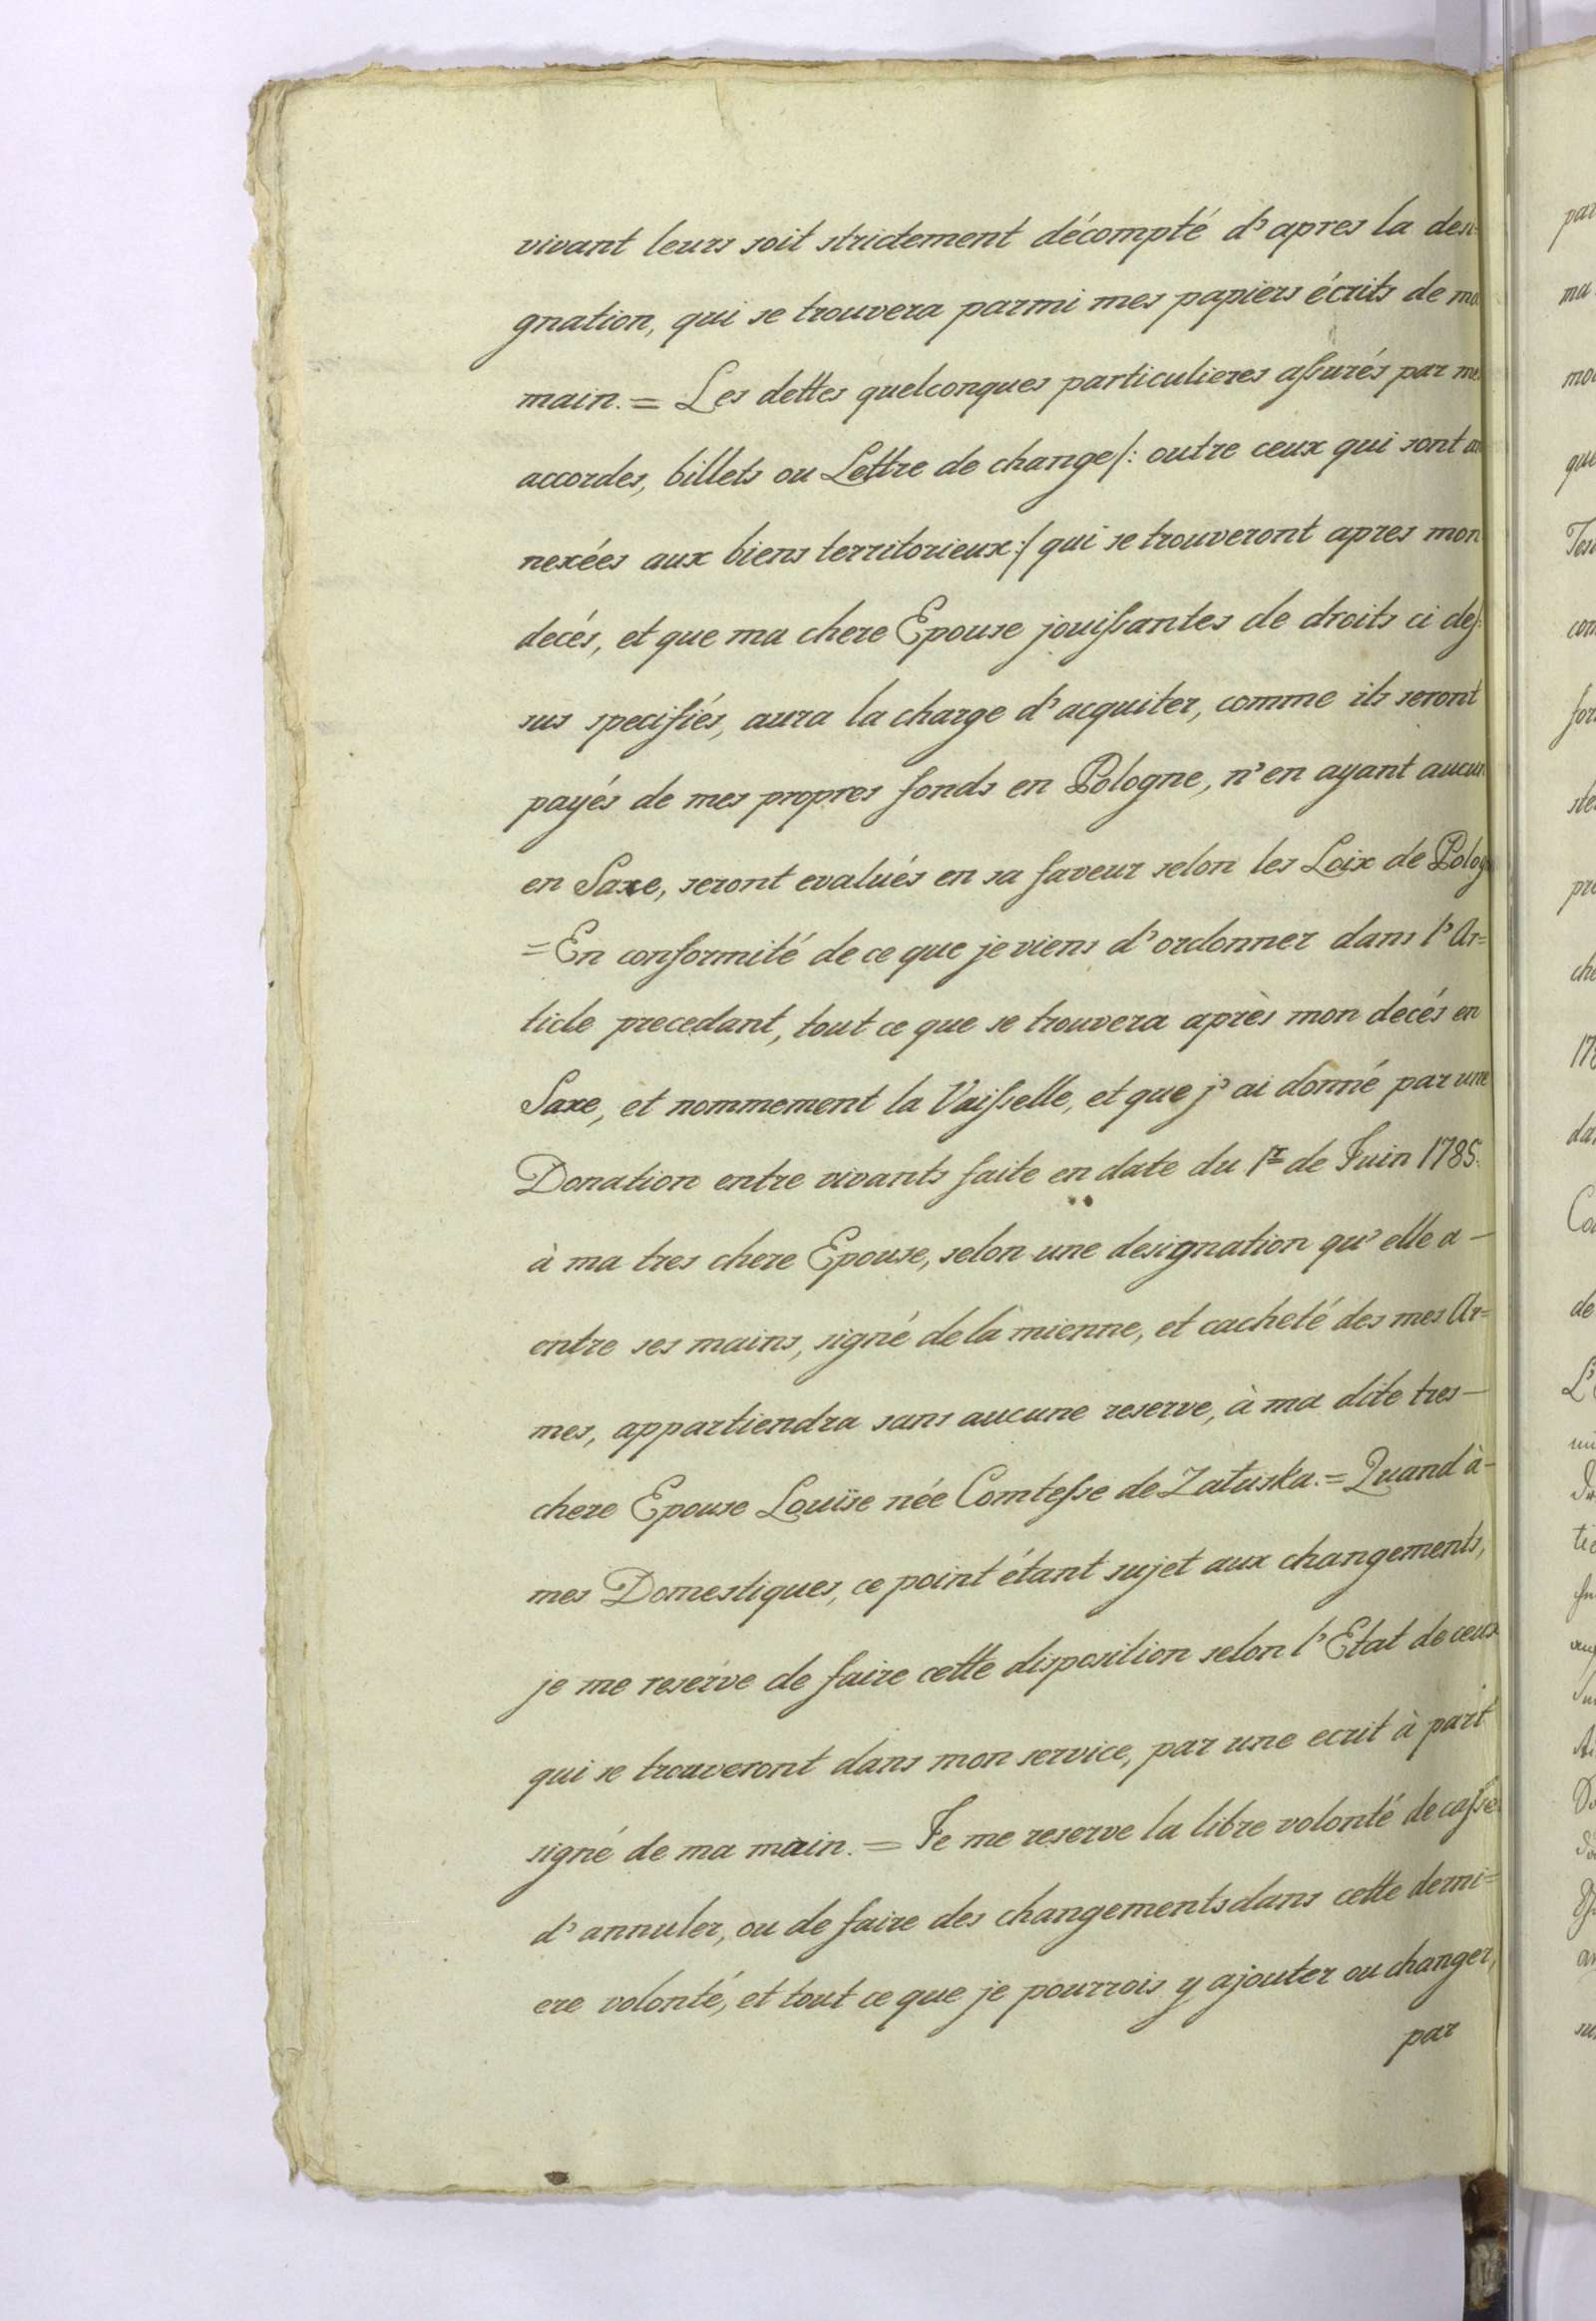 vivant leurs soit strictement décompté d'apres la desi
gnation, qui se trouvera parmi mes papiers écrits de ma
main. = Les dettes quelconques particulieres aſsurés par mes
accordes, billets ou Lettre de change /: outre ceux qui sont an
nexées aux biens territorieux :/ qui se trouveront apres mon
decés, et que ma chere Epouse jouiſsantes de droits ci deſ:
sus specifiés, aura la charge d'acquiter, comme ils seront
payés de mes propres fonds en Pologne, n'en ayant aucun
en Saxe, seront evalués en sa faveur selon les Loix de Polog
= En conformité de ce que je viens d'ordonner dans l'Ar=
ticle precedant, tout ce que se trouvera après mon decés en
Saxe, et nommement la Vaiſselle, et que j'ai donné par une
Donation entre vivants faite en date du 1r de Juin 1785.
à ma tres chere Epouse, selon une designation qu'elle a —
entre ses mains, signé de la mienne, et cacheté des mes Ar=
mes, appartiendra sans aucune reserve, à ma dite tres —
chere Epouse Louïse née Comteſse de Załuska. = Quand à —
mes Domestiques, ce point étant sujet aux changements,
je me reserve de faire cette disposition selon l'Etat de ceux
qui se trouveront dans mon service, par une ecrit à part
signé de ma main. = Je me reserve la libre volonté de caſser
d'annuler, ou de faire des changements dans cette derni=
ere volonté, et tout ce que je pourrois y ajouter ou changer,
par